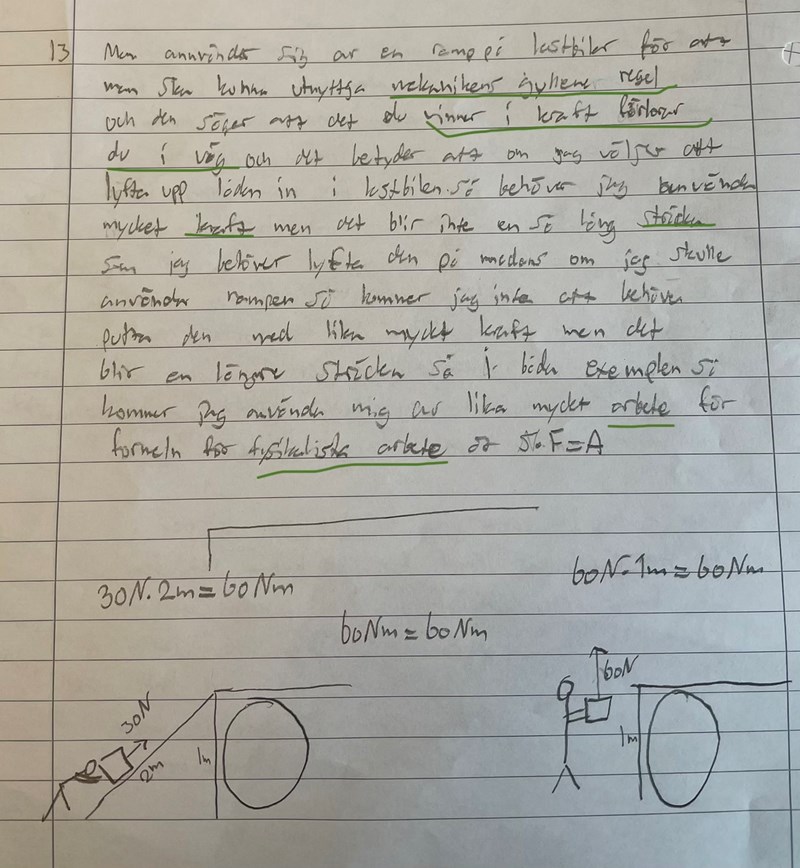 13 Man använder sig av en ramp på lastbiler för att
man ska kunna utnyttja mekanikens gyllene regel
och den säger att det du vinner i kraft förlorar
du i väg och det betyder att om jag väljer att
lyfta upp lådan in i lastbilen så behöver jag använda
mycket kraft men det blir inte en så lång sträcka
som jag behöver lyfta den på medans om jag skulle
använda rampen så kommer jag inte att behöva
putta den med lika myckt kraft men det
blir en längre sträcka så i båda exemplen så
kommer jag använda mig av lika myckt arbete för
formeln för fysikaliska arbete är F=A
30N·2m=60Nm
60N·1m=60Nm
60Nm=60Nm
30N
2m
1m
60N
1m